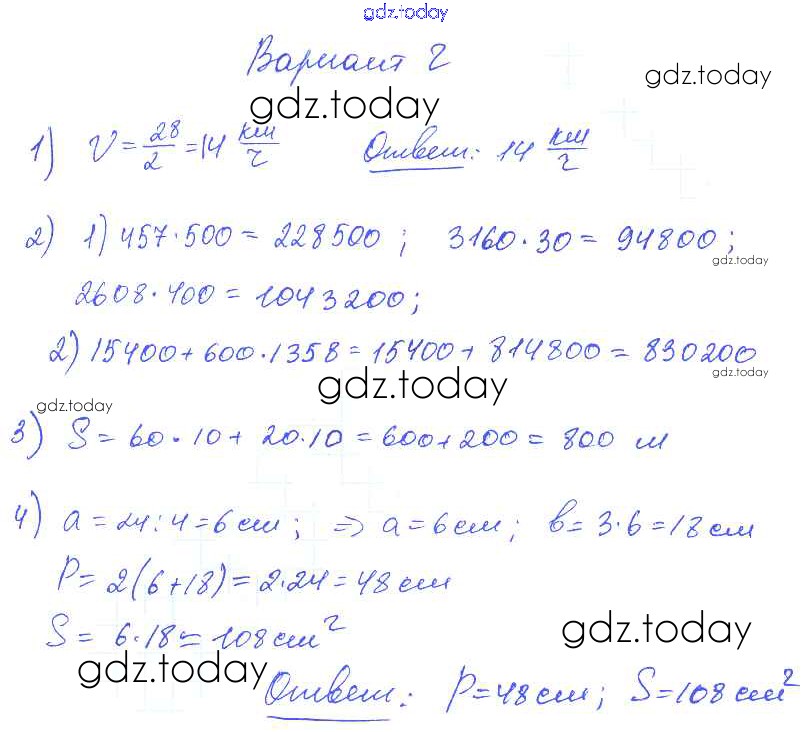 gdz.today
Вариант 2
gdz.today
gdz.today
1) V = 28/2 = 14 км/ч Ответ: 14 км/ч
2) 1) 457·500 = 228500 ; 3160·30 = 94800 ;
gdz.today
2608·400 = 1043200 ;
2) 15400 + 600·1358 = 15400 + 814800 = 830200
gdz.today
gdz.today
3) S = 60·10 + 20·10 = 600 + 200 = 800 м
4) a = 24 : 4 = 6 см ; ⇒ a = 6 см ; в = 3·6 = 18 см
P = 2(6+18) = 2·24 = 48 см
S = 6·18 = 108 см²
gdz.today
gdz.today
Ответ: P = 48 см ; S = 108 см²